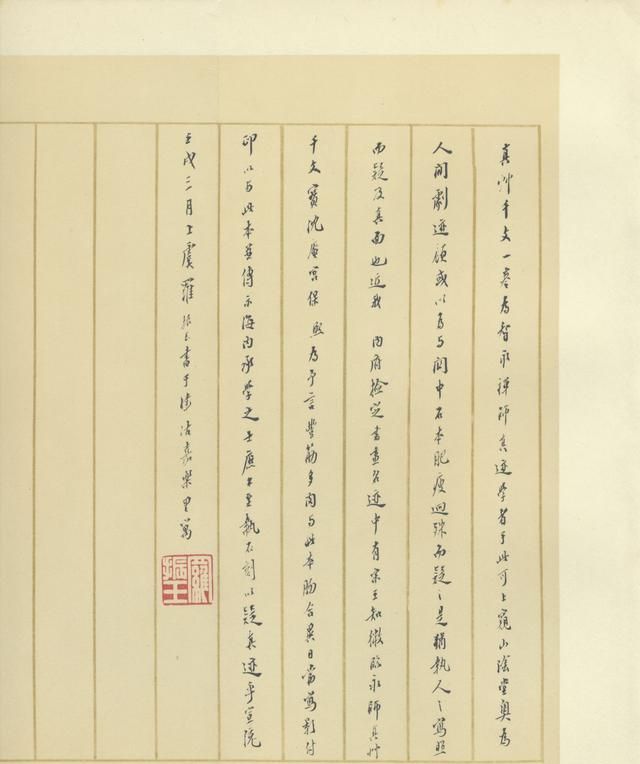 真艸千文一卷為智永禪師真迹學者于此可上窺山陰堂奧為
人間劇迹顧或以為与関中石本肥瘦迥殊而疑之是猶執人之寫照
而疑及真面也近我 內府撿定書畫名迹中有宋王知微臨永師真艸
千文寶沈盦宮保 熙為予言豐筋多肉与此本脗合異日當寫影付
印以与此本並傳示海內承學之士應不至執石刻以疑真迹乎宣統
壬戌三月上虞羅振玉書于津沽嘉樂里寓
羅振玉